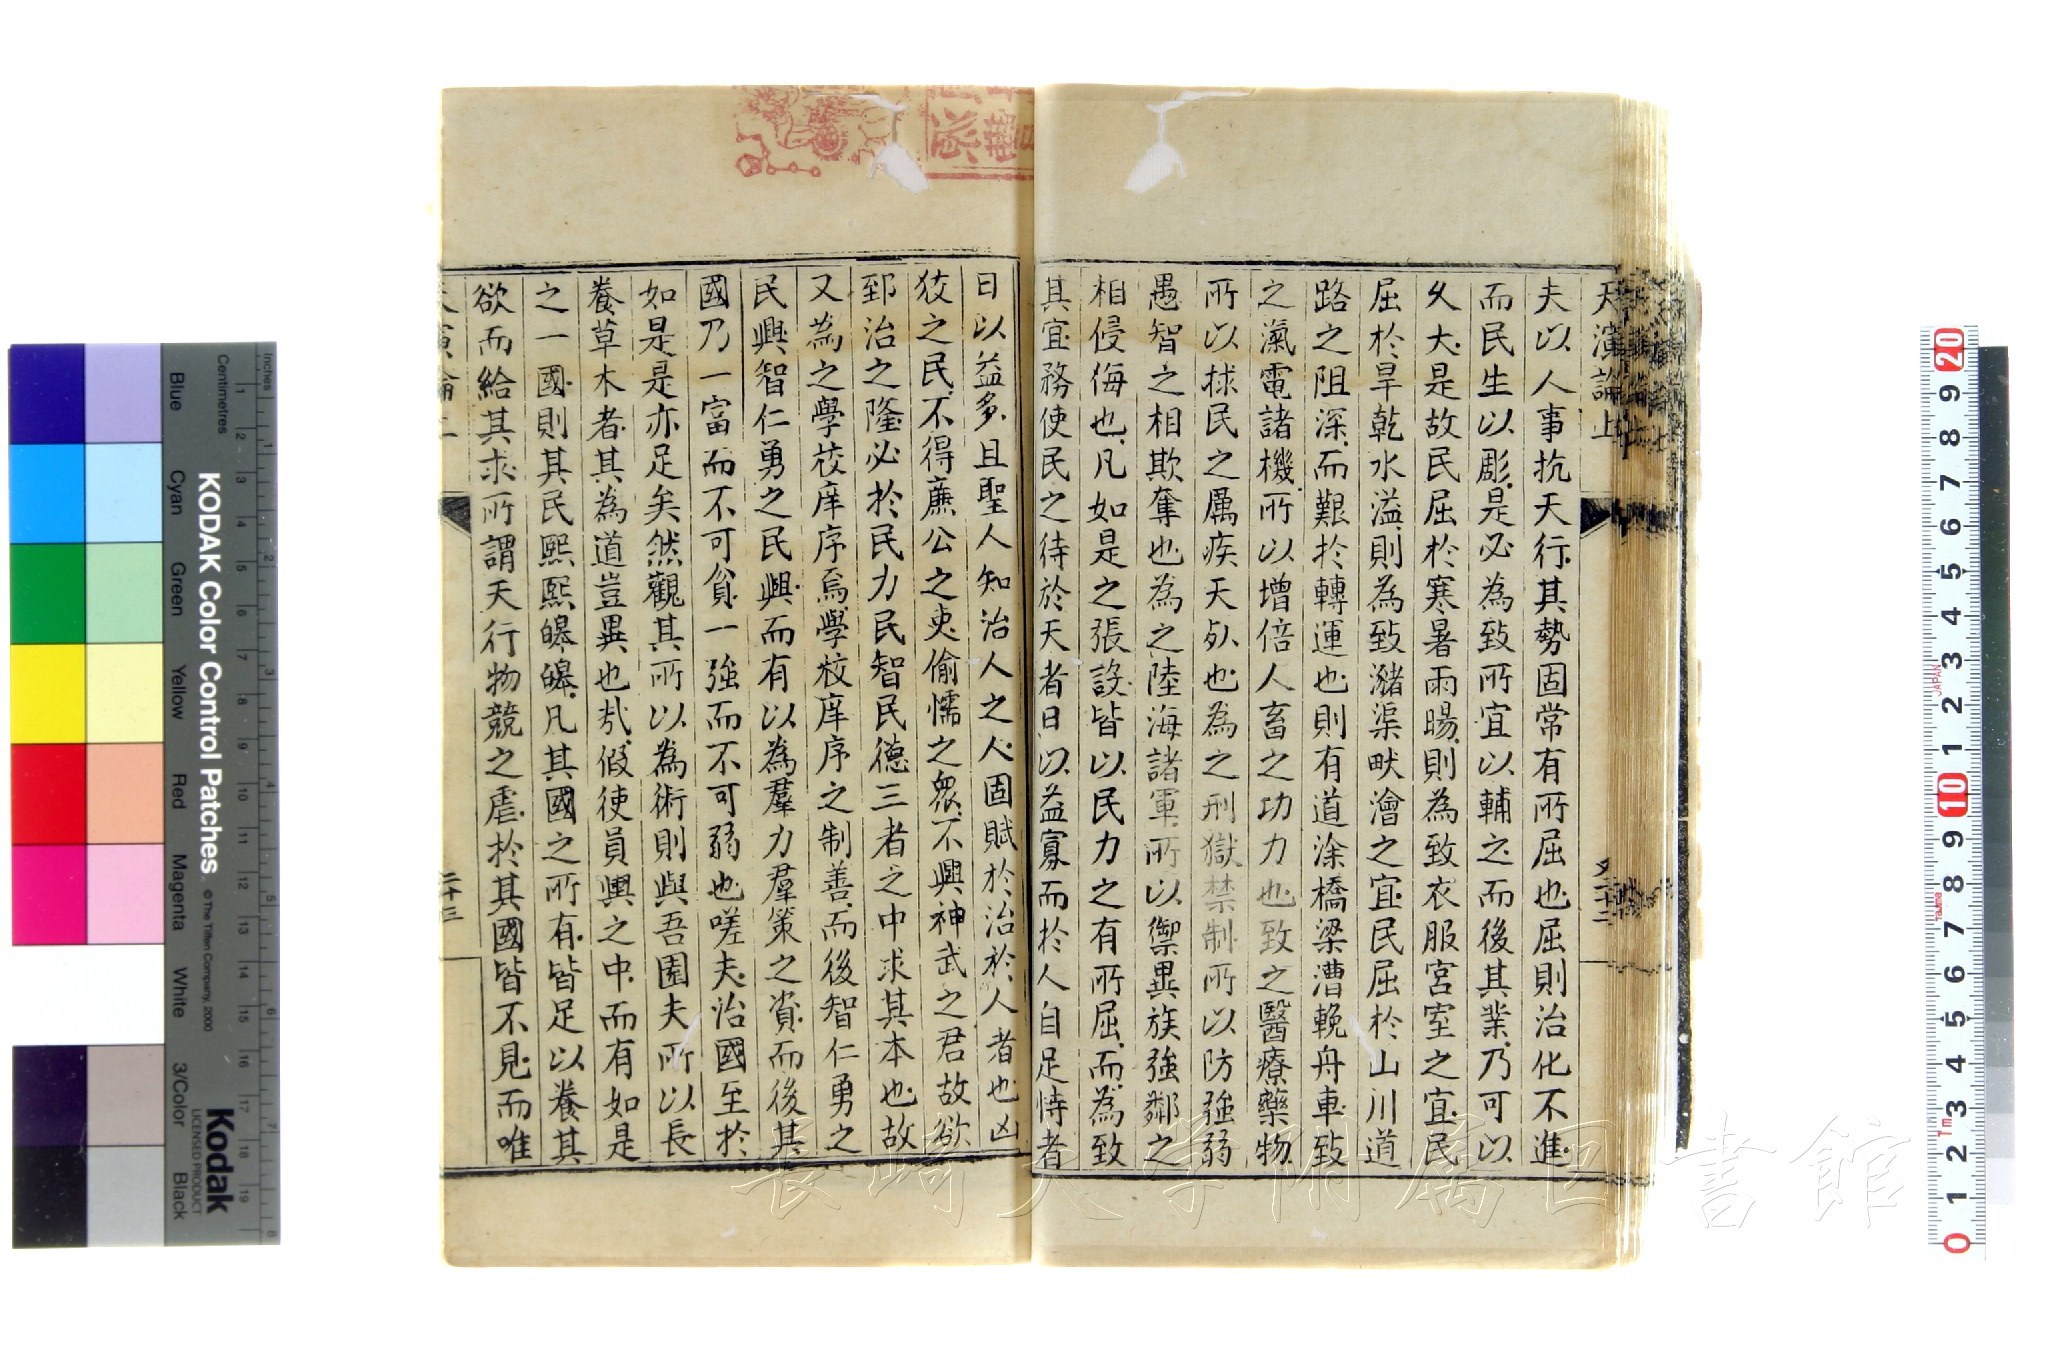 天演論上
夫以人事抗天行其勢固常有所屈也屈則治化不進
而民生以彫是必為致所宜以輔之而後其業乃可以
久大是故民屈於寒暑雨暘則為致衣服宮室之宜民
屈於旱乾水溢則為致瀦渠畎澮之宜民屈於山川道
路之阻深而艱於轉運也則有道涂橋梁漕輓舟車致
之瀛電諸機所以增倍人畜之功力也致之醫療藥物
所以捄民之厲疾天歾也為之刑獄禁制所以防強弱
愚智之相欺奪也為之陸海諸軍所以禦異族強鄰之
相侵侮也凡如是之張設皆以民力之有所屈而為致
其宜務使民之待於天者日以益寡而於人自足恃者
日以益多且聖人知治人之人固賦於治於人者也凶
狡之民不得廉公之吏偷懦之眾不興神武之君故欲
郅治之隆必於民力民智民德三者之中求其本也故
又為之學校庠序焉學校庠序之制善而後智仁勇之
民興智仁勇之民興而有以為羣力羣策之資而後其
國乃一富而不可貧一強而不可弱也嗟夫治國至於
如是是亦足矣然觀其所以為術則與吾園夫所以長
養草木者其為道豈異也哉假使員輿之中而有如是
之一國則其民熙熙皞皞凡其國之所有皆足以養其
欲而給其求所謂天行物競之虐於其國皆不見而唯
二十三
KODAK Color Control Patches
© The Tiffen Company, 2000
Kodak
LICENSED PRODUCT
Inches
Centimetres
Blue
Cyan
Green
Yellow
Red
Magenta
White
3/Color
Black
1 2 3 4 5 6 7 8 9 10 11 12 13 14 15 16 17 18 19
1 2 3 4 5 6 7 8
20 9 8 7 6 5 4 3 2 1 10 9 8 7 6 5 4 3 2 1 0
JAPAN
Tajima
7m
長崎大学附属図書館